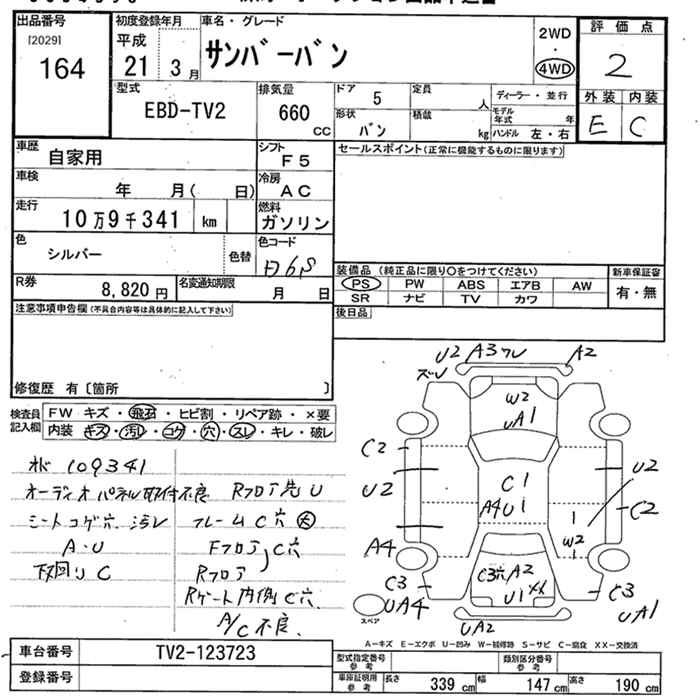 出品番号
[20291]
164
初度登録年月
平成
21 3月
車名・グレード
サンバーバン
2WD
・
4WD
評価点
2
外装 内装
E C
型式
EBD-TV2
排気量
660
CC
ドア
5
定員
人
ディーラー・並行
形状
バン
積載
kg
モデル年式
年
ハンドル 左・右
車歴
自家用
シフト
F5
セールスポイント(正常に機能するものに限ります)
車検
年 月( 日)
冷房
AC
走行
10万9千341 km
燃料
ガソリン
色
シルバー
色替
色コード
装備品 (純正品に限り〇をつけてください)
新車保証書
PS PW ABS エアB AW
有・無
SR ナビ TV カワ
R券
8,820円
名変通知期限
月 日
後日品
注意事項申告欄(不具合内容等は具体的に記入して下さい)
修復歴 有〔箇所 〕
検査員記入欄
FW キズ・飛石・ヒビ割・リペア跡・×要
内装 キズ・汚レ・コゲ・穴・スレ・キレ・破レ
109341
オーディオパネル取付不良
シートコゲ穴.汚レ
A・U
下回りC
Rフロア先U
フレームC穴大
Fフロア C穴
Rフロア
Rゲート内側C穴
A/C不良
U2 A3 ワレ A2
ズレ
W2
UA1
C2
U2
A4
C3
UA4
C1
A4U1
U2
C2
1
W2
C3穴 A2
U1 XX
C3
UA1
UA2
スペア
A-キズ E-エクボ U-凹み W-補修跡 S-サビ C-腐食 XX-交換済
車台番号
TV2-123723
登録番号
型式指定番号参考
類別区分番号参考
車庫証明用参考
長さ 339cm 幅 147cm 高さ 190cm